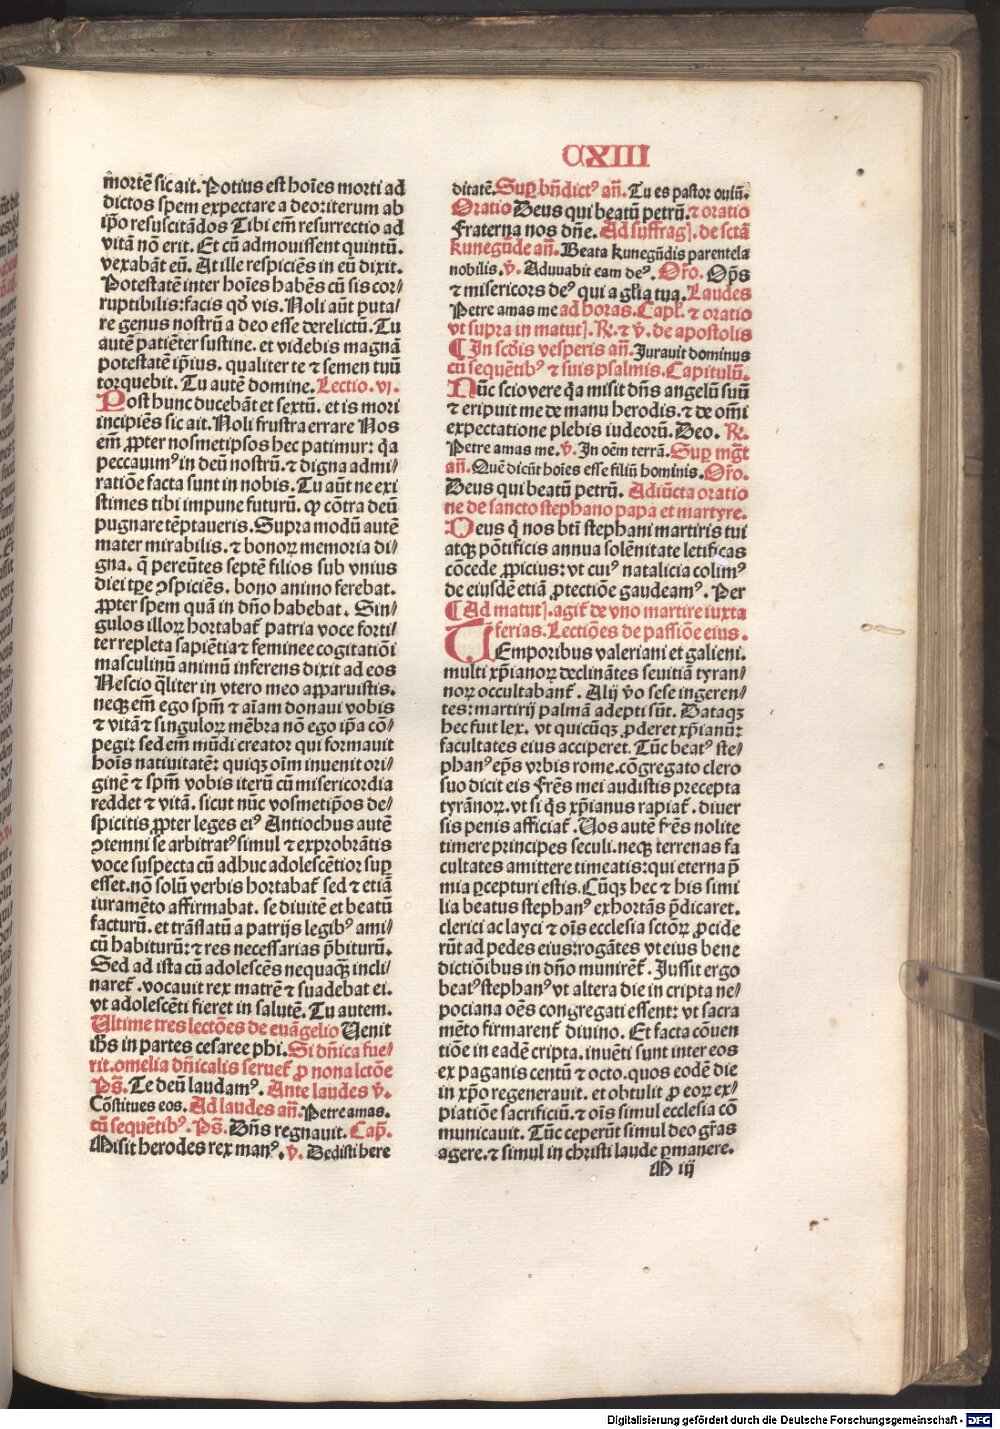 CXIII
mortē sic ait. Potius est hoīes morti ad
dictos spem expectare a deo: iterum ab
ip̄o resuscitādos Tibi em̄ resurrectio ad
vitā nō erit. Et cū admouissent quintū.
vexabāt eū. At ille respiciēs in eū dixit.
Potestatē inter hoīes habēs cū sis cor/
ruptibilis: facis qd̄ vis. Noli aūt puta/
re genus nostrū a deo esse derelictū. Tu
autē patiēter sustine. et videbis magnā
potestatē ip̄ius. qualiter te ⁊ semen tuū
torquebit. Tu autē domine. Lectio. vj.
Post hunc ducebāt et sextū. et is mori
incipiēs sic ait. Noli frustra errare Nos
em̄ ꝓpter nosmetipsos hec patimur: q̄a
peccauimꝰ in deū nostrū. ⁊ digna admi/
ratiōe facta sunt in nobis. Tu aūt ne exi
stimes tibi impune futurū. qꝫ cōtra deū
pugnare tēptaueris. Supra modū autē
mater mirabilis. ⁊ bonoꝝ memoria di/
gna. q̄ pereūtes septē filios sub vnius
diei tꝑe ꝯspiciēs. bono animo ferebat.
ꝓpter spem quā in dn̄o habebat. Sin/
gulos illoꝝ hortabat̄ patria voce forti/
ter repleta sapiētia ⁊ feminee cogitatiōi
masculinū animū inferens dixit ad eos
Nescio q̄liter in vtero meo apparuistis.
neqꝫ em̄ ego spm̄ ⁊ aīam donaui vobis
⁊ vitā ⁊ singuloꝝ mēbra nō ego ip̄a cō/
pegi: sed em̄ mūdi creator qui formauit
hoīs natiuitatē: quiqꝫ oīm inuenit ori/
ginē ⁊ spm̄ vobis iterū cū misericordia
reddet ⁊ vitā. sicut nūc vosmetip̄os de/
spicitis ꝓpter leges eiꝰ Antiochus autē
ꝯtemni se arbitratꝰ simul ⁊ exprobrātis
voce suspecta cū adhuc adolescētior suꝑ
esset. nō solū verbis hortabat̄ sed ⁊ etiā
iuramēto affirmabat. se diuitē et beatū
facturū. et trāslatū a patrijs legibꝰ ami/
cū habiturū: ⁊ res necessarias p̄biturū.
Sed ad ista cū adolescēs nequaqꝫ incli/
naret̄. vocauit rex matrē ⁊ suadebat ei.
vt adolescēti fieret in salutē. Tu autem.
Ultime tres lectōes de euāgelio Uenit
ih̄s in partes cesaree phi. Si dn̄ica fue/
rit. omelia dn̄icalis seruet̄ ꝓ nona lctōe
Ps̄. Te deū laudamꝰ. Ante laudes v̄.
Cōstitues eos. Ad laudes an̄. Petre amas.
cū sequētibꝰ. Ps̄. Dn̄s regnauit. Cap̄.
Misit herodes rex manꝰ. v̄. Dedisti here
ditatē. Suꝑ bn̄dictꝰ an̄. Tu es pastor ouiū.
Oratio Deus qui beatū petrū. ⁊ oratio
Fraterna nos dn̄e. Ad suffragꝭ. de sctā
kunegūde an̄. Beata kunegūdis parentela
nobilis. v̄. Adiuuabit eam deꝰ. Or̄o. Op̄s
⁊ misericors deꝰ qui a gl̄ia tua. Laudes
Petre amas me ad horas. Capl̄. ⁊ oratio
vt supra in matutꝭ. R̄. ⁊ v̄. de apostolis
¶ In scd̄is vesperis an̄. Jurauit dominus
cū sequētibꝰ ⁊ suis psalmis. Capitulū.
Nūc scio vere q̄a misit dn̄s angelū suū
⁊ eripuit me de manu herodis. ⁊ de om̄i
expectatione plebis iudeorū. Deo. R̄.
Petre amas me. v̄. In oēm terrā. Suꝑ mgt̄
an̄. Quē dicūt hoīes esse filiū hominis. Or̄o.
Deus qui beatū petrū. Adiūcta oratio
ne de sancto stephano papa et martyre.
Deus q̄ nos bt̄i stephani martiris tui
atqꝫ pōtificis annua solēnitate letificas
cōcede ꝓpicius: vt cuiꝰ natalicia colimꝰ
de eiusdē etiā ꝓtectiōe gaudeamꝰ. Per
¶ Ad matutꝭ. agit̄ de vno martire iuxta
ferias. Lectiōes de passiōe eius.
TEmporibus valeriani et galieni.
multi xp̄ianoꝝ declinātes seuitiā tyran/
noꝝ occultabant̄. Alij v̄o sese ingeren/
tes: martirij palmā adepti sūt. Dataqꝫ
hec fuit lex. vt quicūqꝫ ꝓderet xp̄ianū:
facultates eius acciperet. Tūc beatꝰ ste/
phanꝰ ep̄s vrbis rome. cōgregato clero
suo dicit eis Fr̄es mei audistis precepta
tyrānoꝝ. vt si q̄s xp̄ianus rapiat̄. diuer
sis penis afficiat̄. Uos autē fr̄es nolite
timere principes seculi. neqꝫ terrenas fa
cultates amittere timeatis: qui eterna p̄
mia ꝑcepturi estis. Cūqꝫ hec ⁊ his simi
lia beatus stephanꝰ exhortās p̄dicaret.
clerici ac layci ⁊ oīs ecclesia sctōꝝ ꝓcide
rūt ad pedes eius: rogātes vt eius bene
dictiōibus in dn̄o munirēt̄. Jussit ergo
beatꝰ stephanꝰ vt altera die in cripta ne/
pociana oēs congregati essent: vt sacra
mēto firmarent̄ diuino. Et facta cōuen
tiōe in eadē cripta. inuēti sunt inter eos
ex paganis centū ⁊ octo. quos eodē die
in xp̄o regenerauit. et obtulit ꝓ eoꝝ ex/
piatiōe sacrificiū. ⁊ oīs simul ecclesia cō
municauit. Tūc ceperūt simul deo gr̄as
agere. ⁊ simul in christi laude ꝑmanere.
M iij
Digitalisierung gefördert durch die Deutsche Forschungsgemeinschaft - DFG